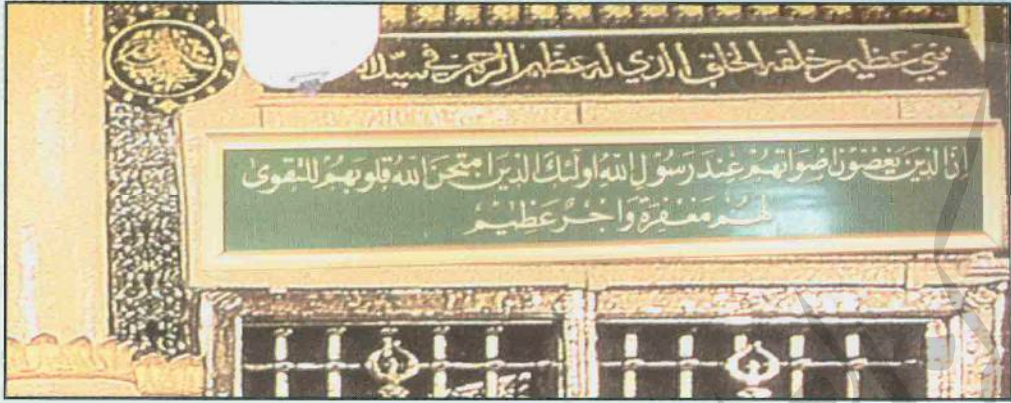 نبي عظيم خلقه الخلق الذي له عظم الرحمن في سيد
إِنَّ الَّذِينَ يَغُضُّونَ أَصْوَاتَهُمْ عِندَ رَسُولِ اللهِ أُولَئِكَ الَّذِينَ امْتَحَنَ اللهُ قُلُوبَهُمْ لِلتَّقْوَىٰ
لَهُمْ مَغْفِرَةٌ وَأَجْرٌ عَظِيمٌ